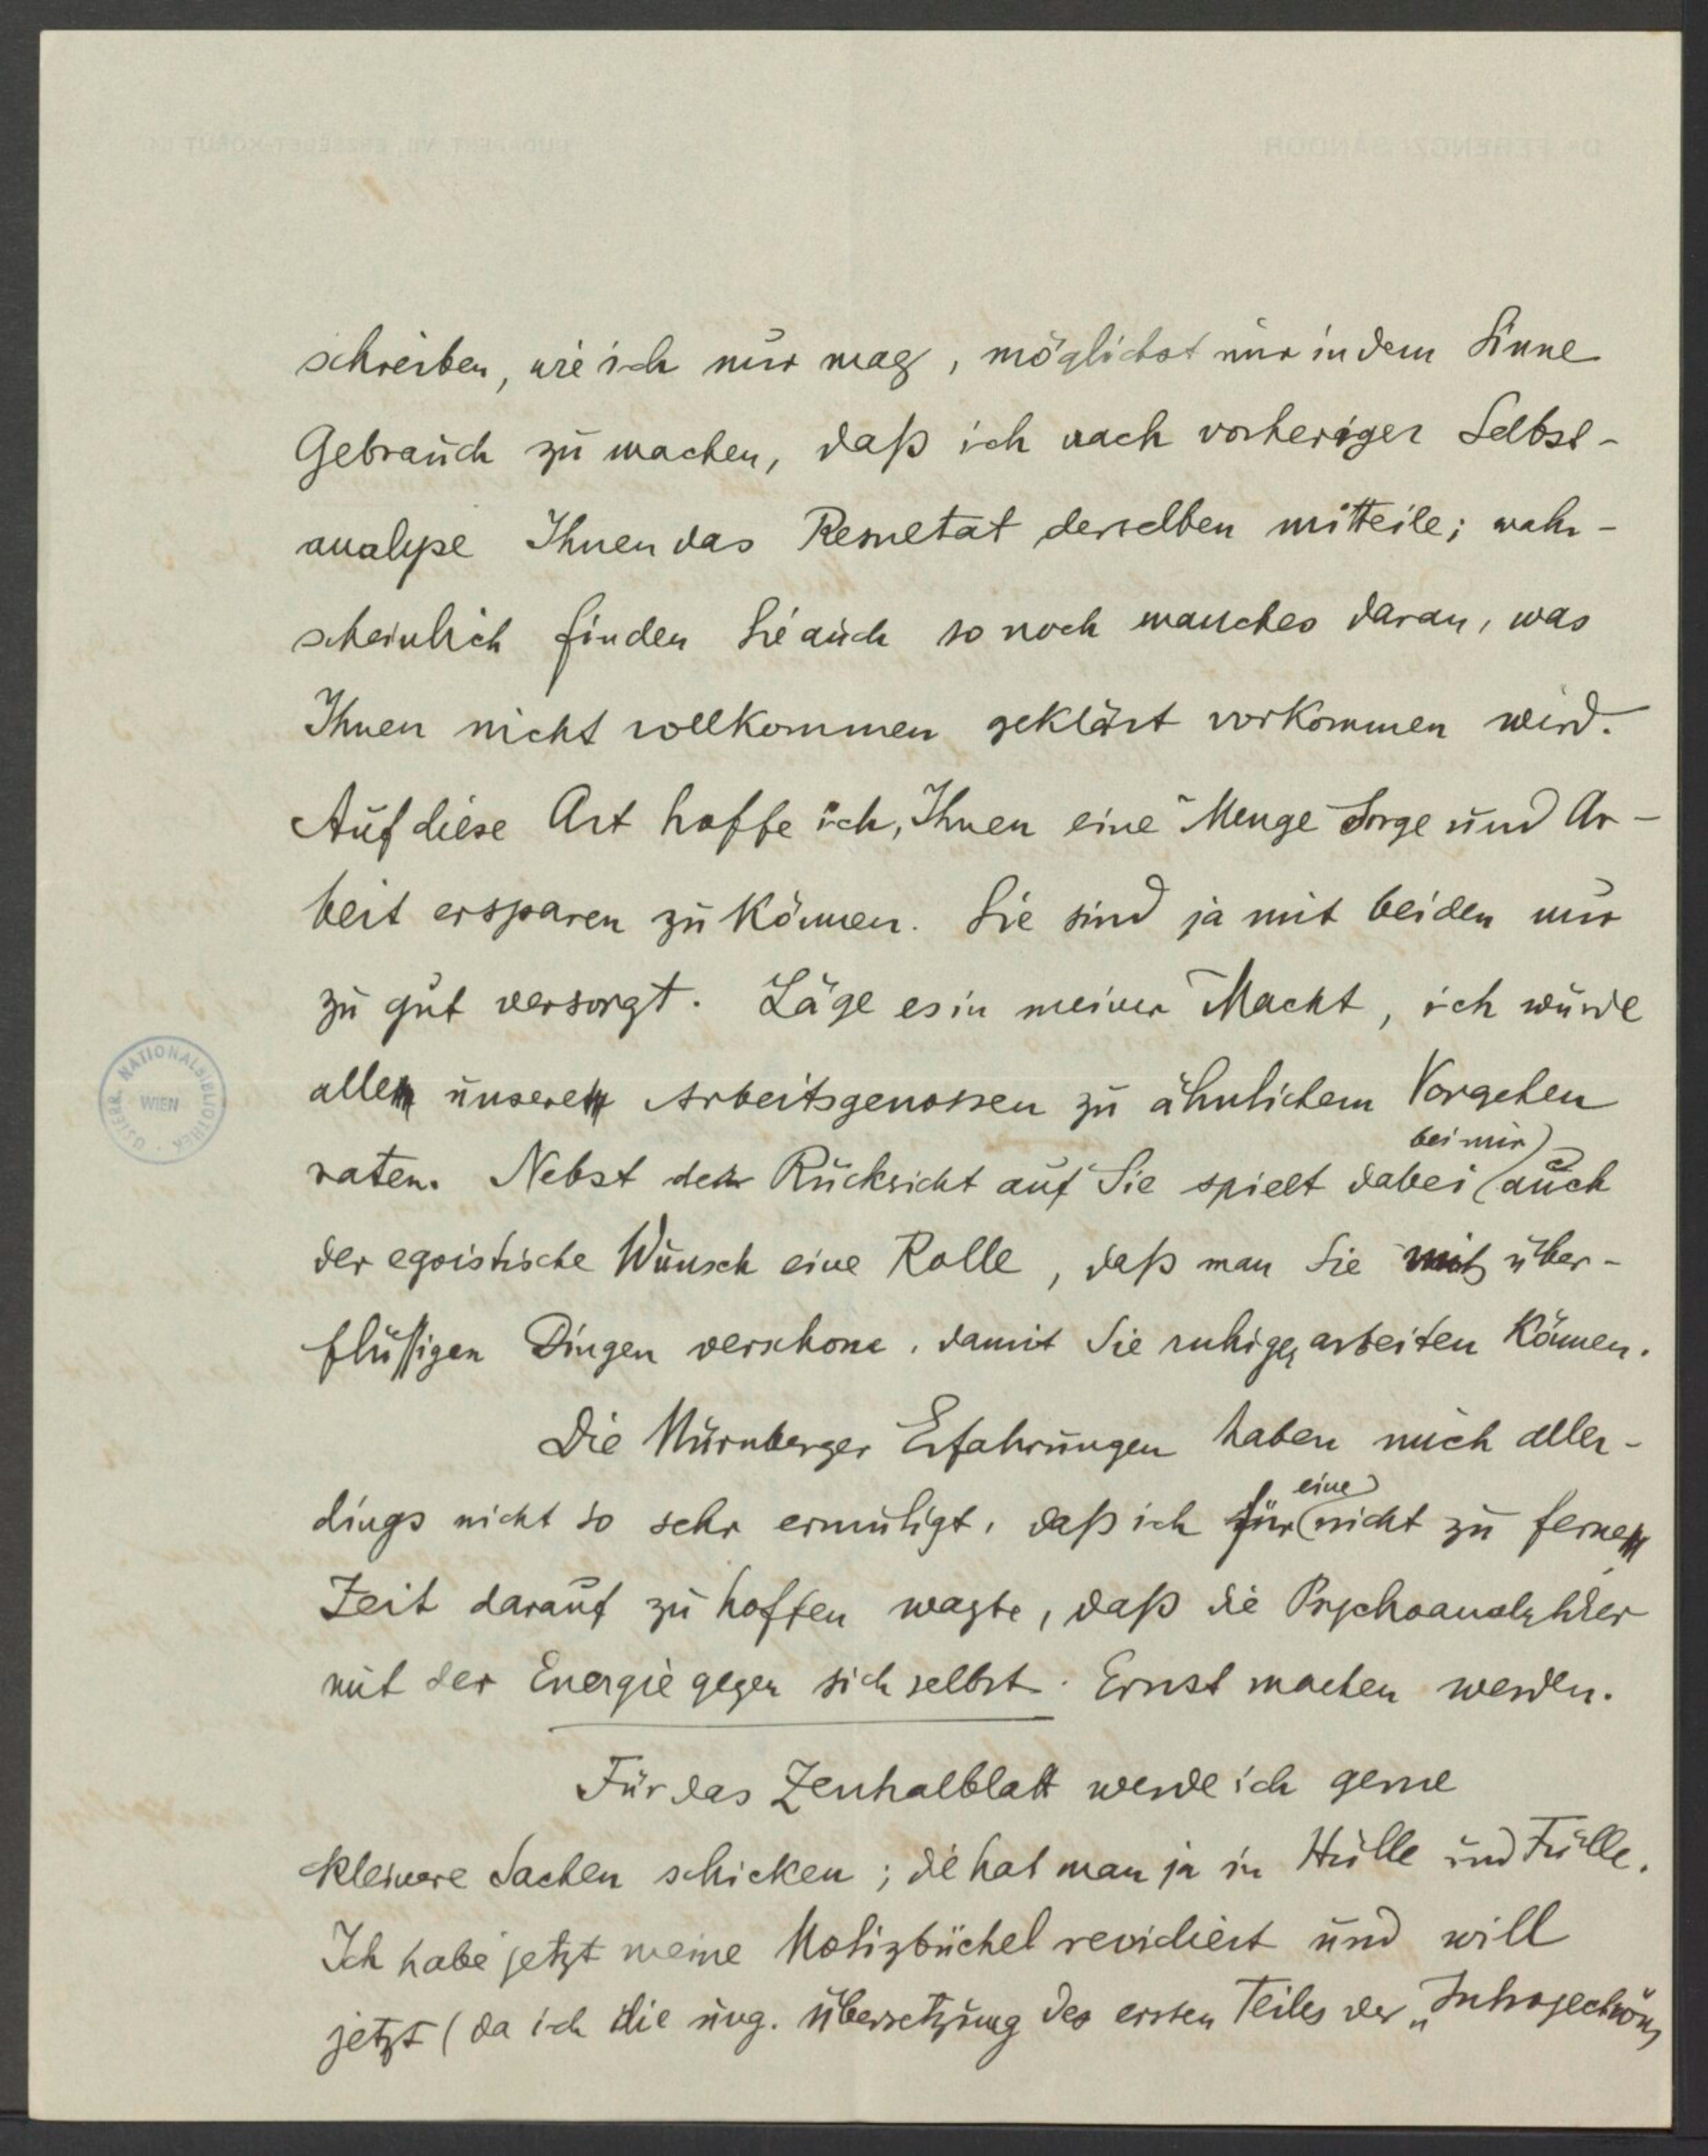 schreiben, wie ich nur mag, möglichst nur in dem Sinne
Gebrauch zu machen, daß ich nach vorheriger Selbst-
analyse Ihnen das Resultat derselben mitteile; wahr-
scheinlich finden Sie auch so noch manches daran, was
Ihnen nicht vollkommen geklärt vorkommen wird.
Auf diese Art hoffe ich, Ihnen eine Menge Sorge und Ar-
beit ersparen zu können. Sie sind ja mit beiden nur
zu gut versorgt. Läge es in meiner Macht, ich würde
allen unseren Arbeitsgenossen zu ähnlichem Vorgehen
raten. Nebst der Rücksicht auf Sie spielt dabei bei mir auch
der egoistische Wunsch eine Rolle, daß man Sie mit über-
flüssigen Dingen verschone, damit Sie ruhiger arbeiten können.
Die Nürnberger Erfahrungen haben mich aller-
dings nicht so sehr ermutigt, daß ich für eine nicht zu ferne
Zeit darauf zu hoffen wagte, daß die Psychoanalytiker
mit der Energie gegen sich selbst Ernst machen werden.
Für das Zentralblatt werde ich gerne
kleinere Sachen schicken; die hat man ja in Hülle und Fülle.
Ich habe jetzt meine Notizbüchel revidiert und will
jetzt (da ich die ung. Übersetzung des ersten Teiles der „Introjection
ÖSTERR. NATIONALBIBLIOTHEK WIEN
DR FERENCZI SÁNDOR
BUDAPEST, VII, ERZSÉBET-KÖRUT 54.